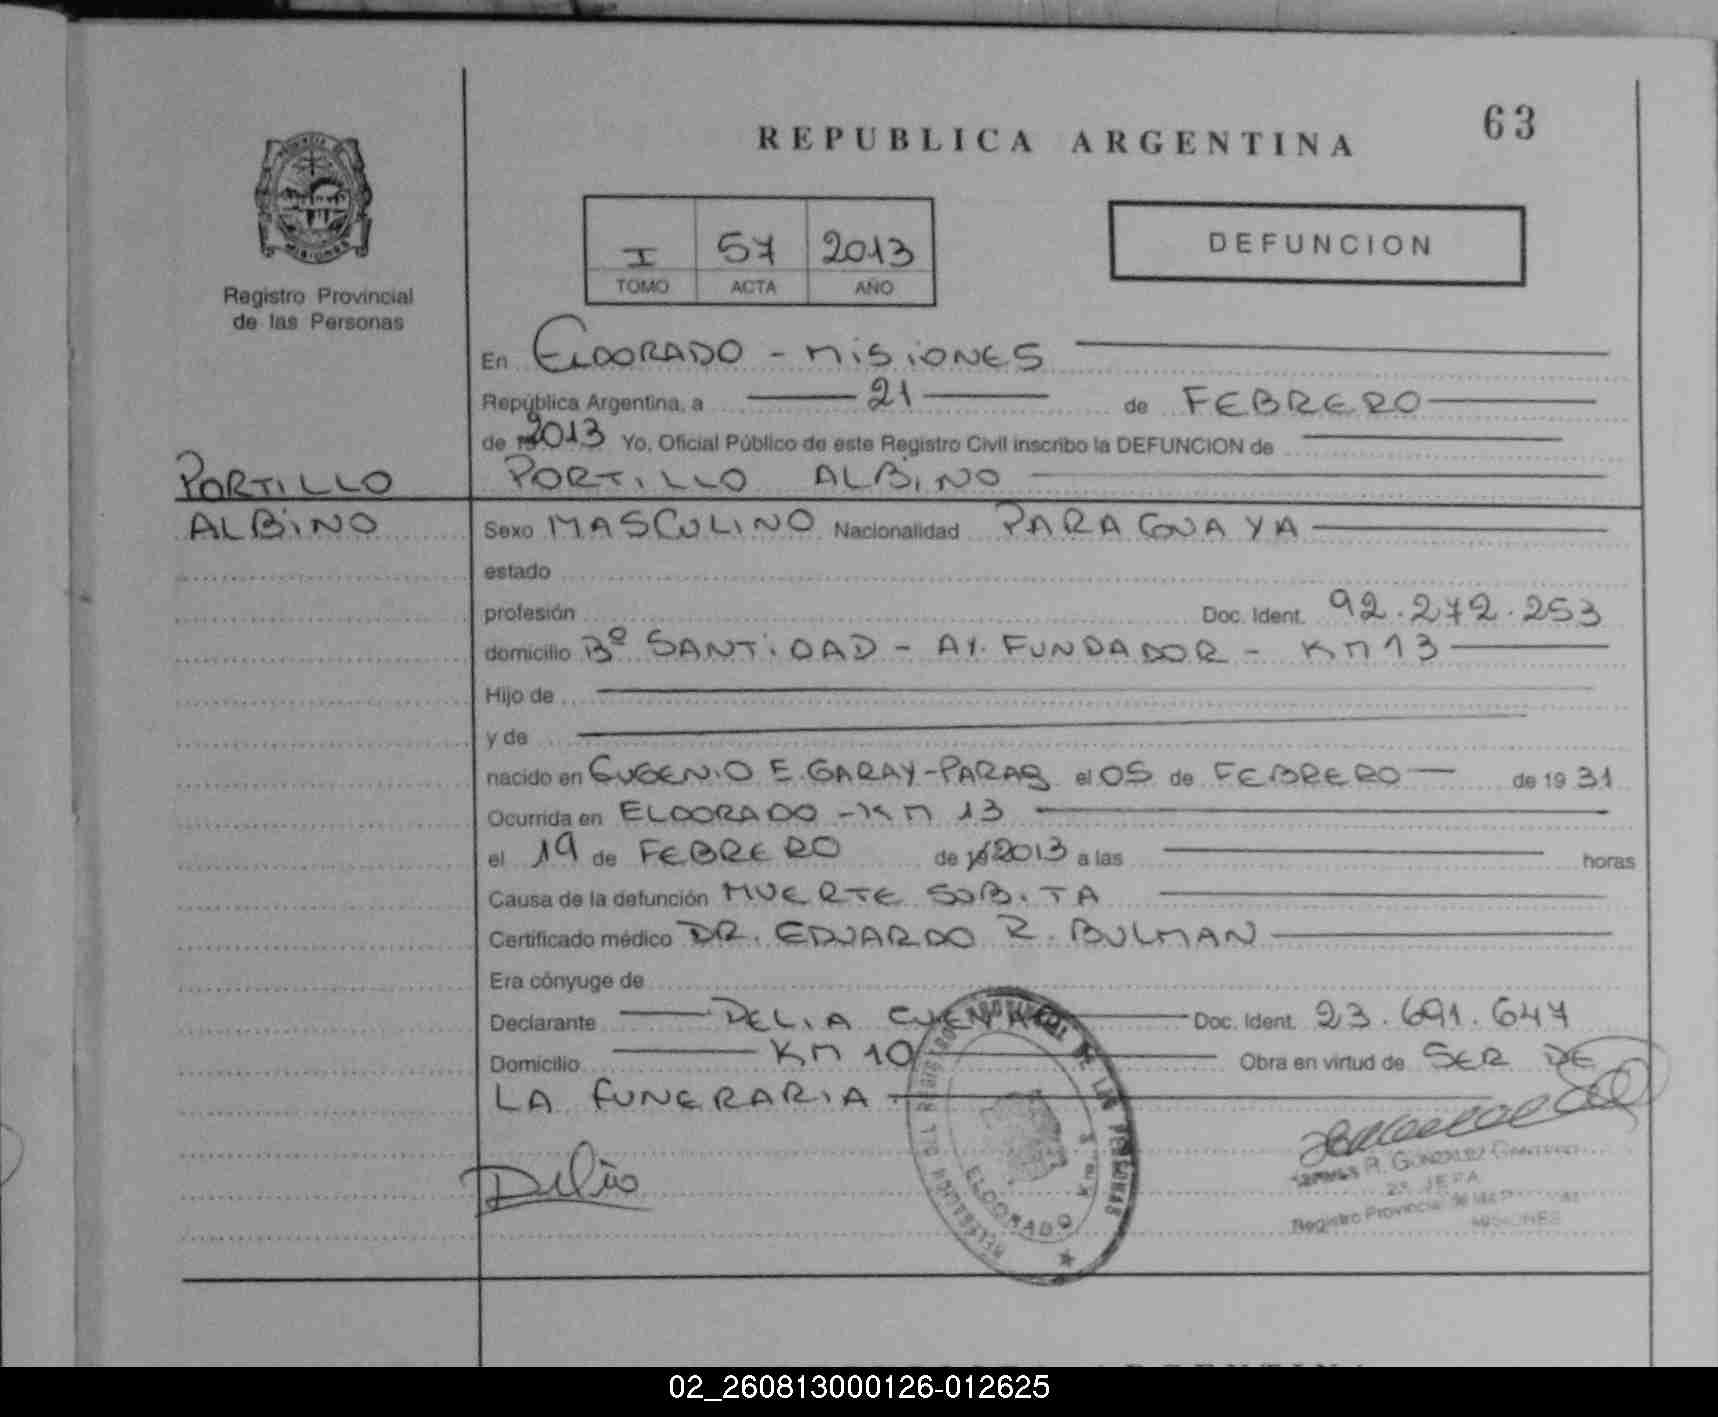 REPUBLICA ARGENTINA
63
Registro Provincial
de las Personas
I 57 2013
TOMO ACTA AÑO
DEFUNCION
En ELDORADO - MISIONES
República Argentina, a 21 de FEBRERO
de 2013 Yo, Oficial Público de este Registro Civil inscribo la DEFUNCION de
PORTILLO ALBINO
PORTILLO
ALBINO
Sexo MASCULINO Nacionalidad PARAGUAYA
estado
profesión Doc. Ident. 92.272.253
domicilio Bº SANTIDAD - AV. FUNDADOR - KM 13
Hijo de
y de
nacido en EUGENIO E. GARAY-PARAG el 05 de FEBRERO de 19 31
Ocurrida en ELDORADO - KM 13
el 19 de FEBRERO de 2013 a las horas
Causa de la defunción MUERTE SUBITA
Certificado médico DR. EDUARDO R. BULMAN
Era cónyuge de
Declarante DELIA Doc. Ident. 23.691.647
Domicilio KM 10 Obra en virtud de SER DE
LA FUNERARIA
Delia
DE LAS PERSONAS
ELDORADO
R. GONZALEZ
JEFA
Registro Provincial de las
MISIONES
02_260813000126-012625